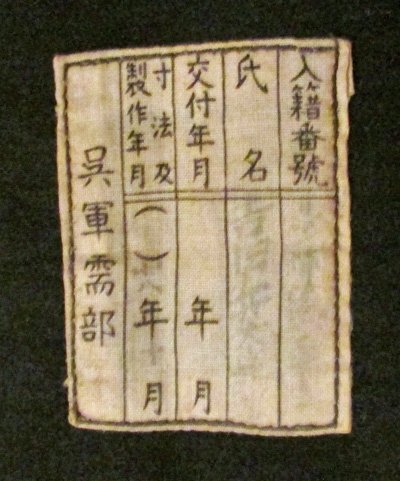 入籍番號
氏名
交付年月
年月
寸法及
製作年月
( )年月
呉軍需部